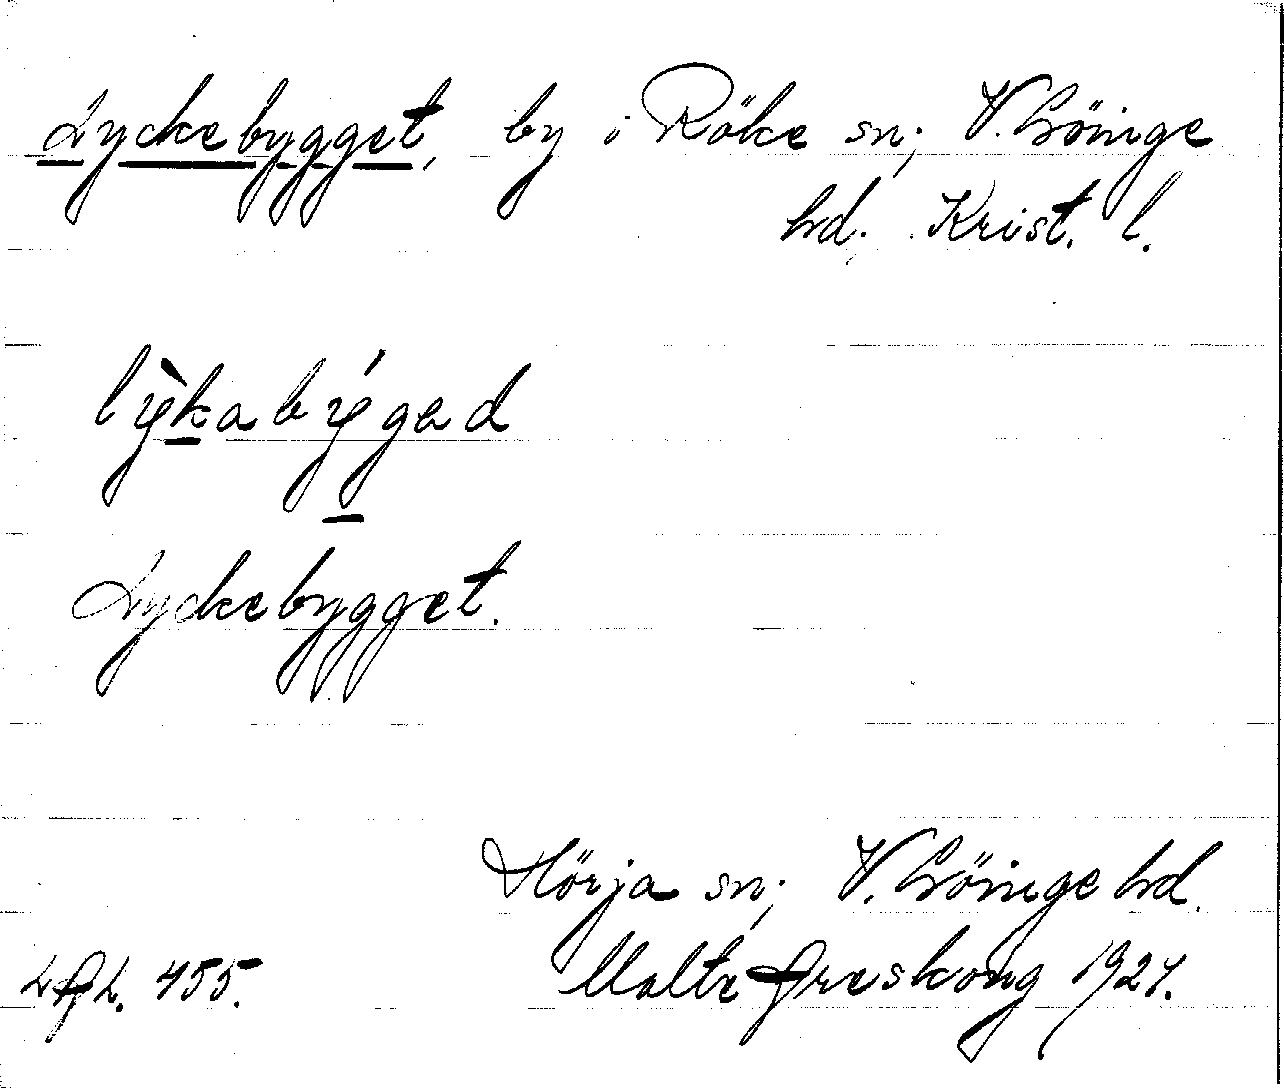 Lyckebygget, by i Röke sn; V. Göinge
hd. Krist. l.
lỳkabýgad
Lyckebygget.
Hörja sn; V. Göinge hd.
Malte Areskoug 1927.